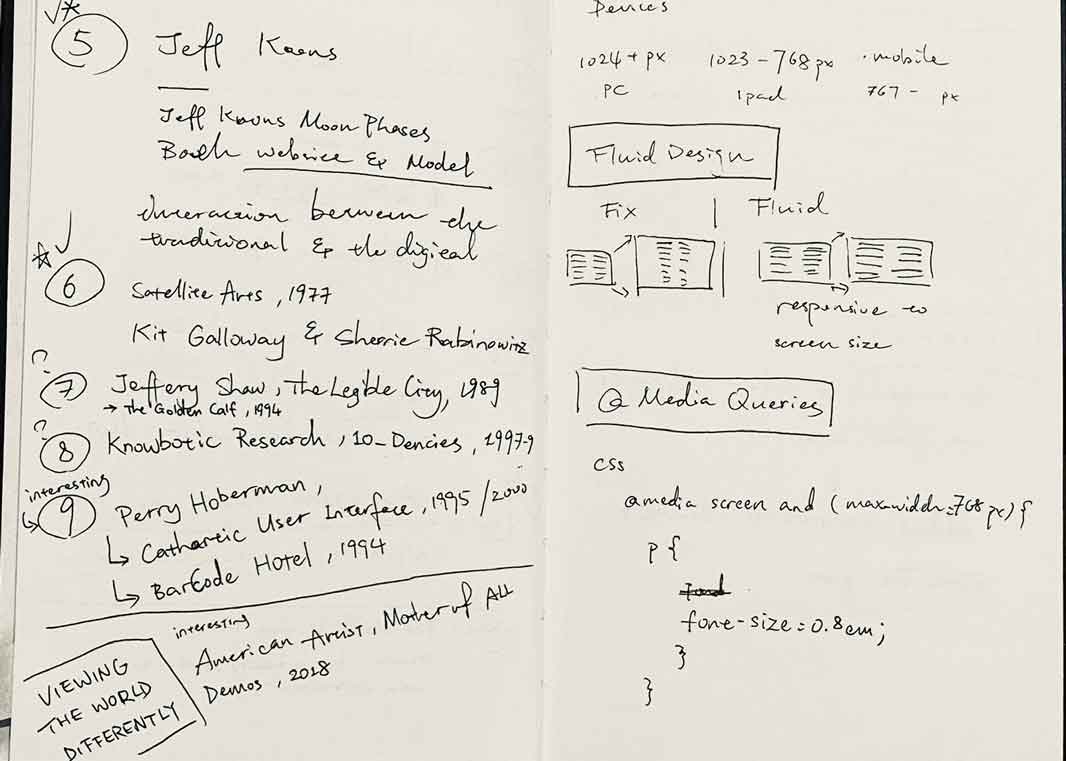 5 Jeff Koons
Jeff Koons Moon Phases
Both website & Model
Interaction between the
traditional & the digital
6 Satellite Arts, 1977
Kit Galloway & Sherrie Rabinowitz
?
7 Jeffery Shaw, The Legible City, 1989
→ The Golden Calf, 1994
?
8 Knowbotic Research, 10_Dencies, 1997-9
interesting
9 Perry Hoberman,
↳ Cathartic User Interface, 1995/2000
↳ BarCode Hotel, 1994
VIEWING
THE WORLD
DIFFERENTLY
interesting
American Artist, Mother of All
Demos, 2018
Devices
1024+ px 1023 - 768 px · mobile
PC ipad 767 - px
Fluid Design
Fix | Fluid
responsive to
screen size
@ Media Queries
css
@media screen and (max-width=768px){
p {
font-size=0.8em;
}
}